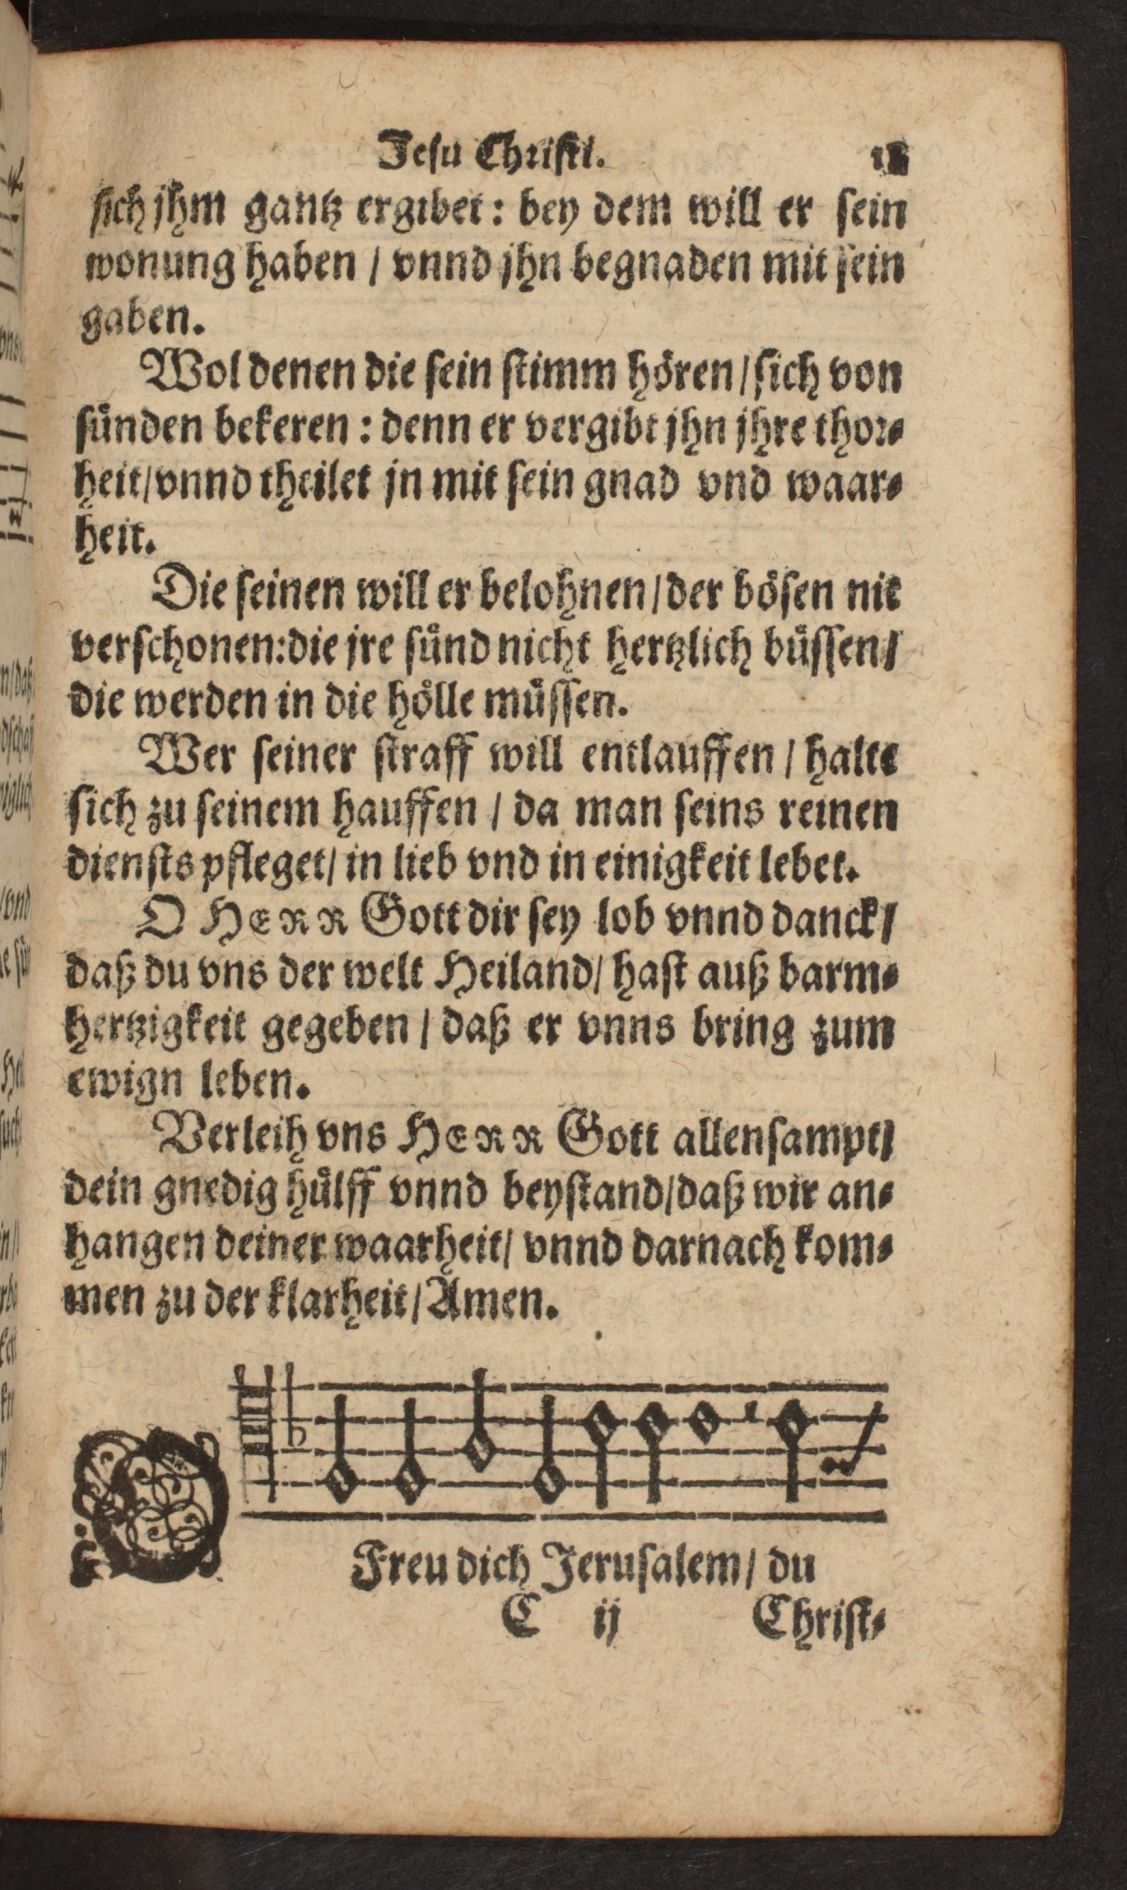 Jesu Christi.
sich jhm gantz ergibet: bey dem will er sein
wonung haben / vnnd jhn begnaden mit sein
gaben.
Wol denen die sein stimm hören / sich von
sünden bekeren: denn er vergibt jhn jhre thor⸗
heit / vnnd theilet jn mit sein gnad vnd waar⸗
heit.
Die seinen will er belohnen / der bösen nit
verschonen: die jre sünd nicht hertzlich büssen /
die werden in die hölle müssen.
Wer seiner straff will entlauffen / halte
sich zu seinem hauffen / da man seins reinen
diensts pfleget / in lieb vnd in einigkeit lebet.
O HERR Gott dir sey lob vnnd danck /
daß du vns der welt Heiland / hast auß barm⸗
hertzigkeit gegeben / daß er vnns bring zum
ewign leben.
Verleih vns HERR Gott allensampt /
dein gnedig hülff vnnd beystand / daß wir an⸗
hangen deiner waarheit / vnnd darnach kom⸗
men zu der klarheit / Amen.
O
Freu dich Jerusalem / du
C ij Christ⸗